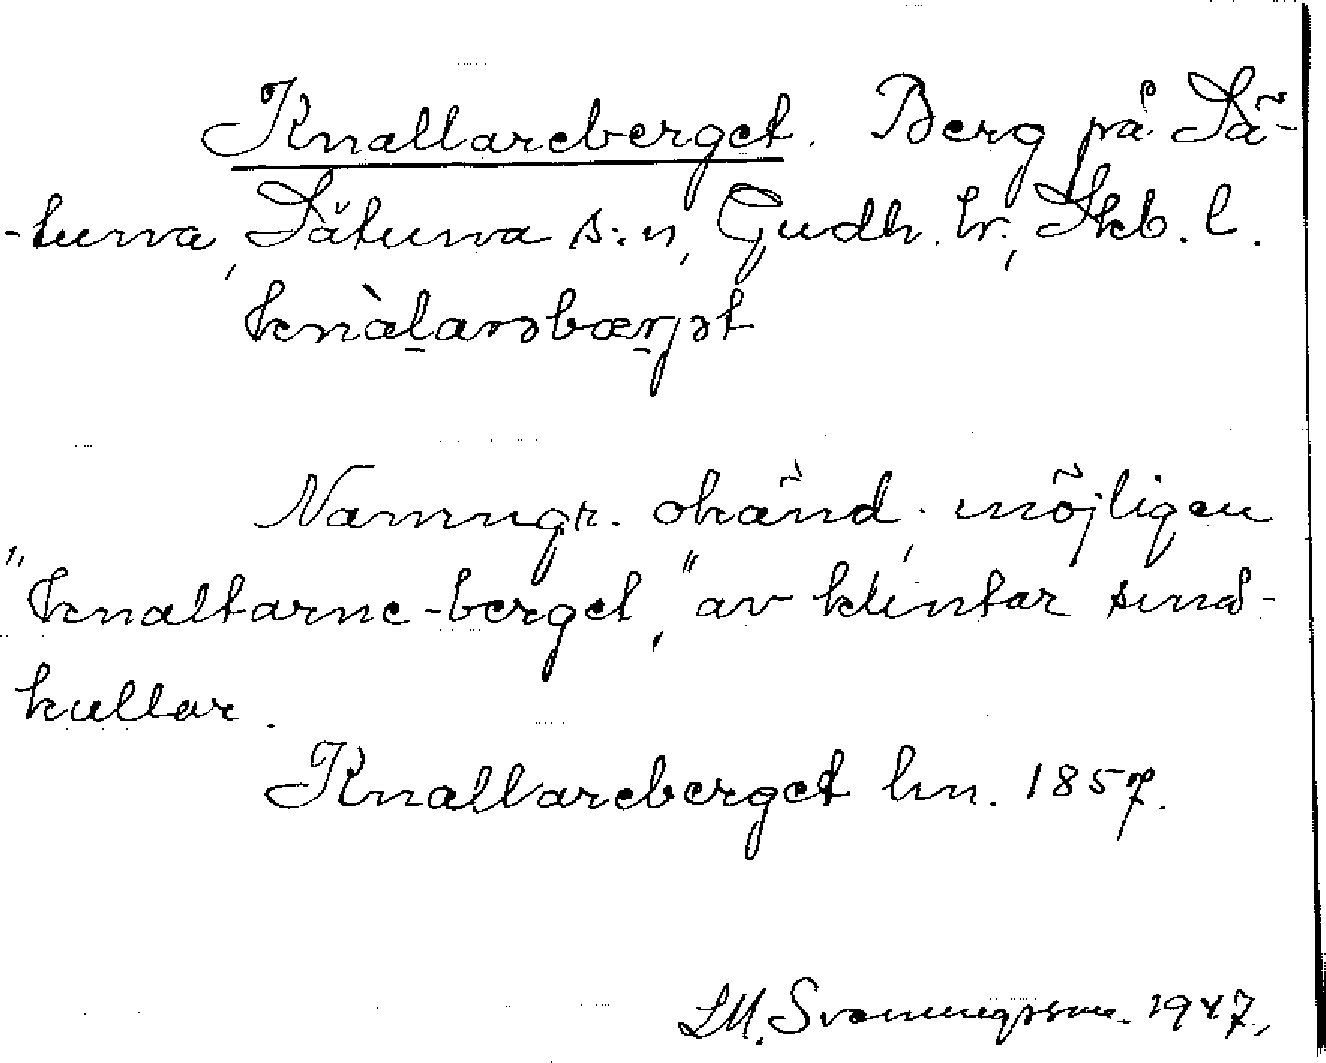 Knallareberget. Berg på Sä-
-tuna, Sätuna s:n, Gudh. hr., Skb. l.
knàlarəbærjət
Namngr. okänd; möjligen
"knaltarne-berget," av klintar små-
kullar.
Knallareberget lm. 1857.
LM. Svanungsson. 1947.